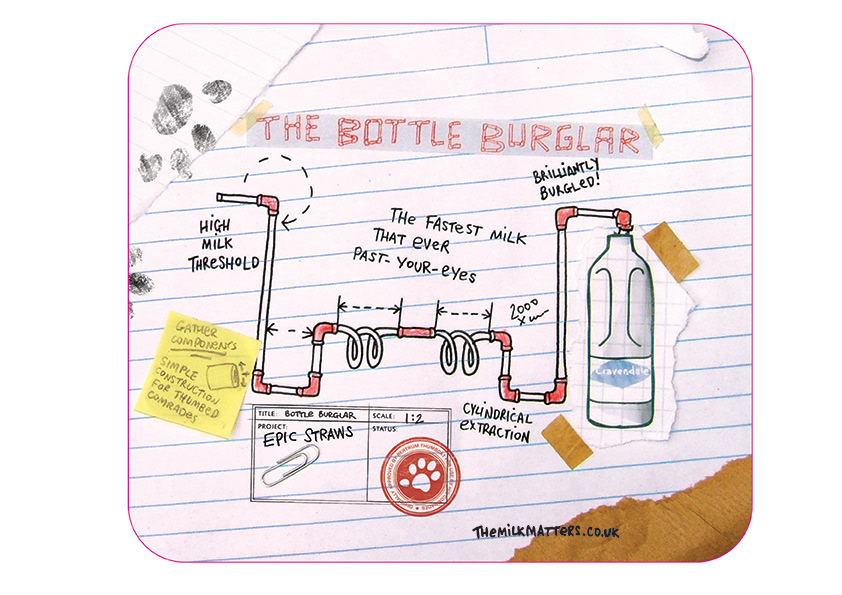 THE BOTTLE BURGLAR
BRILLIANTLY
BURGLED!
HIGH
MILK
THRESHOLD
THE FASTEST MILK
THAT EVER
PAST-YOUR-EYES
2000
GATHER
COMPONENTS
SIMPLE
CONSTRUCTION
FOR THUMBED
COMRADES
Cravendale
CYLINDRICAL
EXTRACTION
TITLE: BOTTLE BURGLAR
SCALE: 1:2
PROJECT:
EPIC STRAWS
STATUS
THEMILKMATTERS.CO.UK